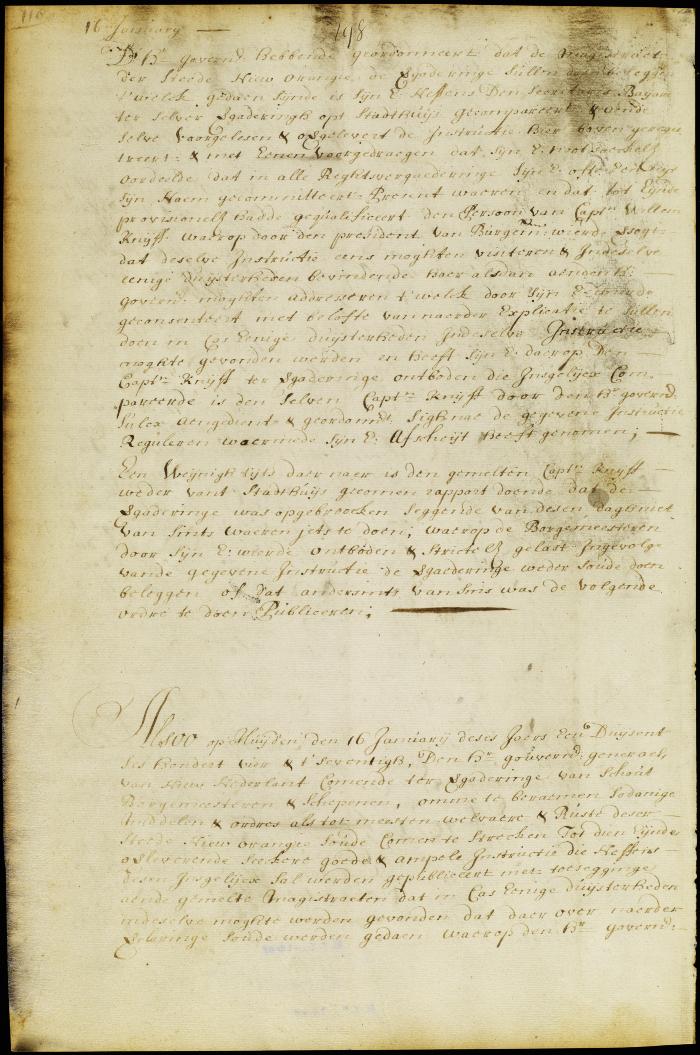 116
198
16 January —
D' Hr Governr Hebbende geordonneert dat de Magistraet
der Steede Niew orangie de Vgaderinge Sullen doen beleggen
t'welck gedaen synde is Syn E. neffens Den Secretaris Bayard
ter selver Vgaderingh opt Stadthuys gecompareert & aende
selve voorgelesen & opgelevert de Instructie hier boven geregis
treert. & met Eenen voorgedraegen dat Syn E. nootsaeckelyk
oordeelde dat in alle Reghtsvergaederinge Syn E. ofte Een uyt
Syn Naem gecommitteert Present waeren en dat tot Eynde
provisionelyk hadde gequalificeert den Persoon van Captn Willem
Knyff. waerop door den president van Burgemrn wierde versogt
dat deselve Instructie eens moghten visiteren & Indeselve
eenige duysterheden bevindende haer alsdan aenden Hr
Governr moghten addresseren t'welck door Syn E. wierde
geconsenteert met belofte van naerder Explicatie te sullen
doen in Cas Eenige duysterheden Indeselve Instructie
moghte gevonden werden en heeft Syn E. daerop Den
Captn Knyff ter Vgaderinge ontboden die Insgelyex Com-
pareerde is den selven Captn Knyff door den Hr governr
Sulcx aengedient & geordonnt Sigh nae de gegevene Instructie
Reguleren waermede Syn E. Afscheijt heeft genomen; —
Een Weynigh tijts daer naer is den gemelten Captn Knyff —
weder vant Stadthuys gecomen rapport doende dat de —
Vgaderinge was opgebroocken seggende van desen dagh niet
van sints waeren jets te doen; waerop de Borgemeesteren
door Syn E. wierde ontboden & strictelyk gelast Ingevolge
vande gegevene Instructie de Vgaederinge weder soude doen
beleggen of dat andersints van sins was de volgende
ordre te doen Publiceren; —
Alsoo op Huyden den 16 January deses Jaers Een Duysent
Ses hondert vier & t'seventigh, Den Hr gouvernr generael
van Niew Nederlant Comende ter Vgaderinge van Schout
Burgemeesteren & Schepenen, omme te beraemen sodanige
middelen & ordres als tot meesten welvaere & Ruste deser
Steede Niew orangie soude Comen te strecken Tot dien eynde
opleverende seeckere goede & ampele Instructie die neffens
desen Insgelyex sal werden gepubliceert met toesegginge
aende gemelte Magistraeten dat in Cas Eenige duysterheden
indeselve moghte werden gevonden dat daer over naerder
gedaen waerop den Hr governr